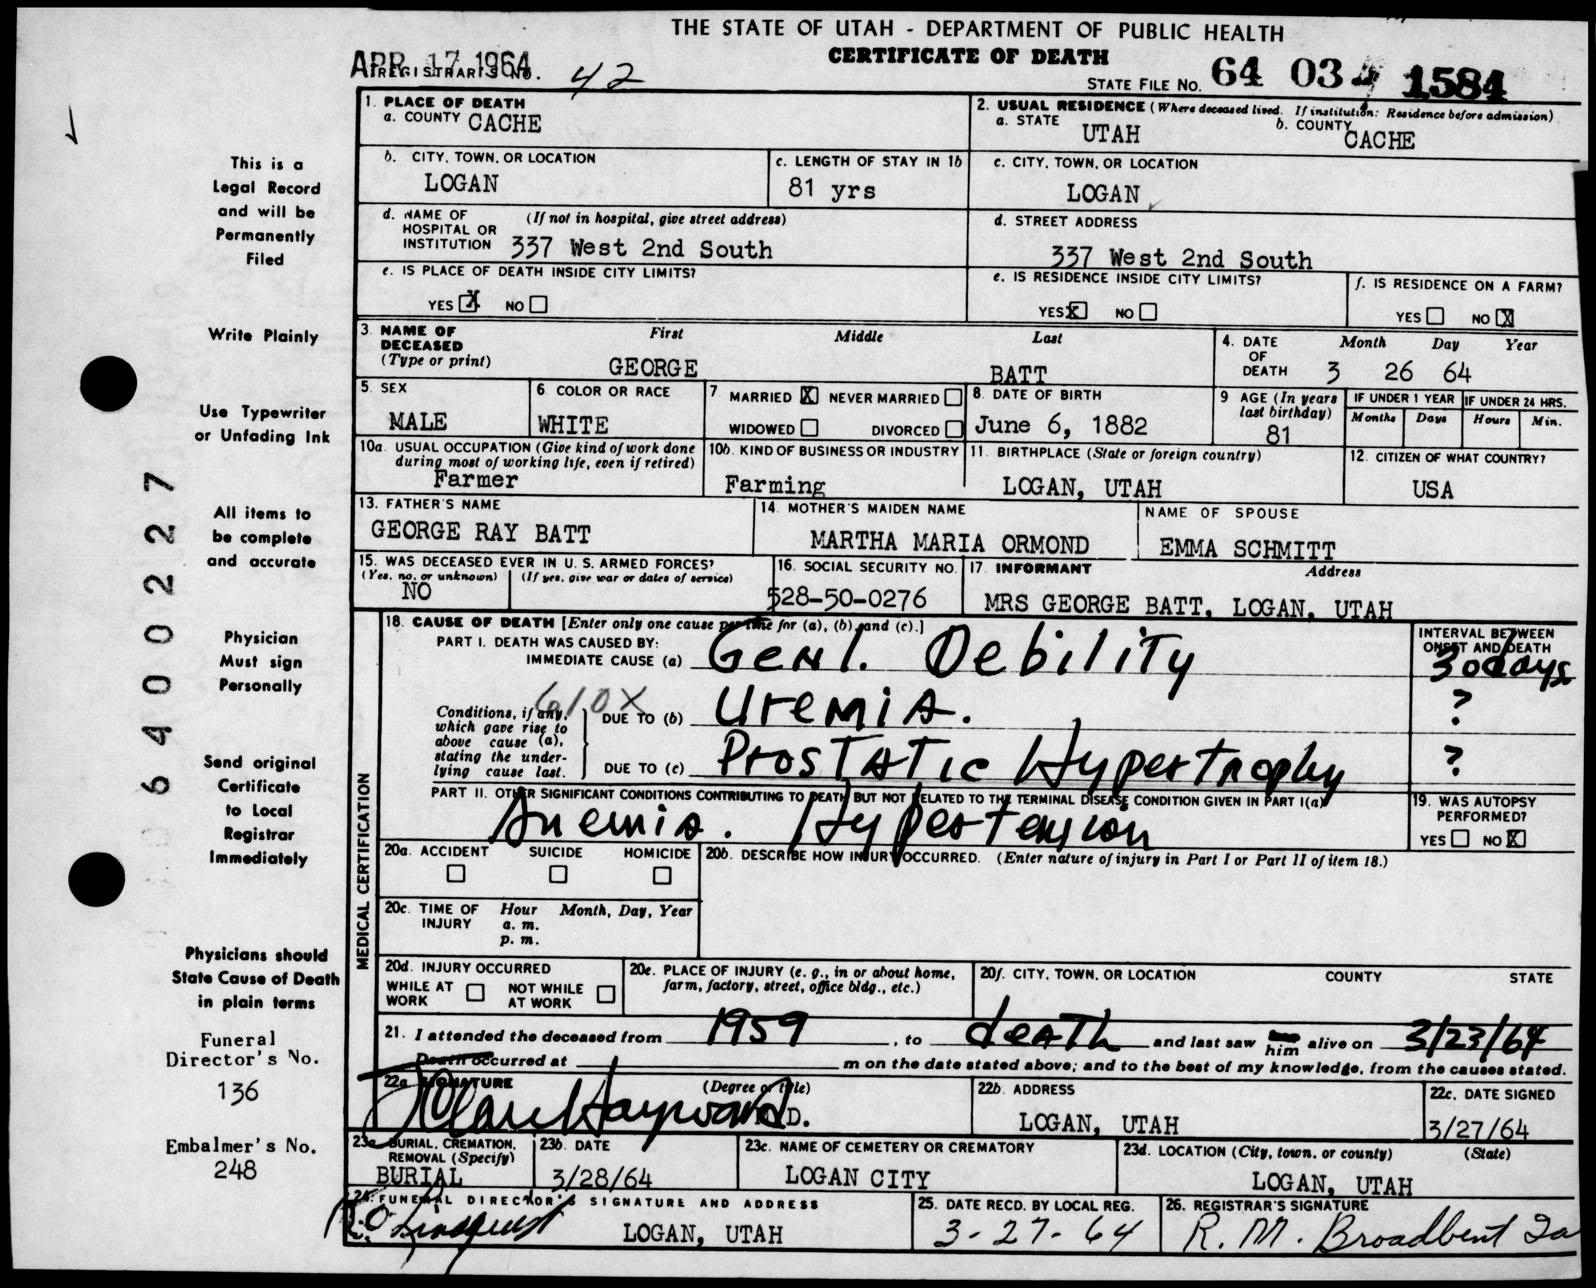 THE STATE OF UTAH - DEPARTMENT OF PUBLIC HEALTH
CERTIFICATE OF DEATH
APR 17 1964
REGISTRAR'S NO. 42
STATE FILE NO. 64 03 1584
1. PLACE OF DEATH
a. COUNTY CACHE
2. USUAL RESIDENCE (Where deceased lived. If institution: Residence before admission)
a. STATE UTAH b. COUNTY CACHE
b. CITY, TOWN, OR LOCATION LOGAN
c. LENGTH OF STAY IN 1b 81 yrs
c. CITY, TOWN, OR LOCATION LOGAN
d. NAME OF HOSPITAL OR INSTITUTION (If not in hospital, give street address) 337 West 2nd South
d. STREET ADDRESS 337 West 2nd South
e. IS PLACE OF DEATH INSIDE CITY LIMITS?
YES X NO
e. IS RESIDENCE INSIDE CITY LIMITS?
YES X NO
f. IS RESIDENCE ON A FARM?
YES NO X
3. NAME OF DECEASED (Type or print) First Middle Last
GEORGE BATT
4. DATE OF DEATH Month Day Year
3 26 64
5. SEX MALE
6. COLOR OR RACE WHITE
7 MARRIED X NEVER MARRIED
WIDOWED DIVORCED
8. DATE OF BIRTH June 6, 1882
9 AGE (In years last birthday) 81
IF UNDER 1 YEAR Months Days
IF UNDER 24 HRS. Hours Min.
10a. USUAL OCCUPATION (Give kind of work done during most of working life, even if retired) Farmer
10b. KIND OF BUSINESS OR INDUSTRY Farming
11. BIRTHPLACE (State or foreign country) LOGAN, UTAH
12. CITIZEN OF WHAT COUNTRY? USA
13. FATHER'S NAME GEORGE RAY BATT
14. MOTHER'S MAIDEN NAME MARTHA MARIA ORMOND
NAME OF SPOUSE EMMA SCHMITT
15. WAS DECEASED EVER IN U. S. ARMED FORCES?
(Yes, no, or unknown) (If yes, give war or dates of service)
NO
16. SOCIAL SECURITY NO. 528-50-0276
17. INFORMANT Address
MRS GEORGE BATT, LOGAN, UTAH
MEDICAL CERTIFICATION
18. CAUSE OF DEATH [Enter only one cause per line for (a), (b), and (c).]
PART I. DEATH WAS CAUSED BY:
IMMEDIATE CAUSE (a) Genl. Debility
INTERVAL BETWEEN ONSET AND DEATH
30 days
610X
Conditions, if any, which gave rise to above cause (a), stating the underlying cause last.
DUE TO (b) Uremia. ?
DUE TO (c) Prostatic Hypertrophy ?
PART II. OTHER SIGNIFICANT CONDITIONS CONTRIBUTING TO DEATH BUT NOT RELATED TO THE TERMINAL DISEASE CONDITION GIVEN IN PART I(a)
Anemia. Hypertension
19. WAS AUTOPSY PERFORMED?
YES NO X
20a. ACCIDENT SUICIDE HOMICIDE
20b. DESCRIBE HOW INJURY OCCURRED. (Enter nature of injury in Part I or Part II of item 18.)
20c. TIME OF INJURY Hour Month, Day, Year
a. m.
p. m.
20d. INJURY OCCURRED
WHILE AT WORK NOT WHILE AT WORK
20e. PLACE OF INJURY (e. g., in or about home, farm, factory, street, office bldg., etc.)
20f. CITY, TOWN, OR LOCATION COUNTY STATE
21. I attended the deceased from 1959, to death and last saw him alive on 3/23/64
Death occurred at m on the date stated above; and to the best of my knowledge, from the causes stated.
22a SIGNATURE (Degree or title)
Hayward M.D.
22b. ADDRESS LOGAN, UTAH
22c. DATE SIGNED 3/27/64
23a BURIAL, CREMATION, REMOVAL (Specify) BURIAL
23b. DATE 3/28/64
23c. NAME OF CEMETERY OR CREMATORY LOGAN CITY
23d. LOCATION (City, town, or county) (State)
LOGAN, UTAH
24. FUNERAL DIRECTOR'S SIGNATURE AND ADDRESS
Lindquist LOGAN, UTAH
25. DATE RECD. BY LOCAL REG. 3-27-64
26. REGISTRAR'S SIGNATURE R. M. Broadbent
This is a
Legal Record
and will be
Permanently
Filed
Write Plainly
Use Typewriter
or Unfading Ink
All items to
be complete
and accurate
Physician
Must sign
Personally
Send original
Certificate
to Local
Registrar
Immediately
Physicians should
State Cause of Death
in plain terms
Funeral
Director's No.
136
Embalmer's No.
248
6400227